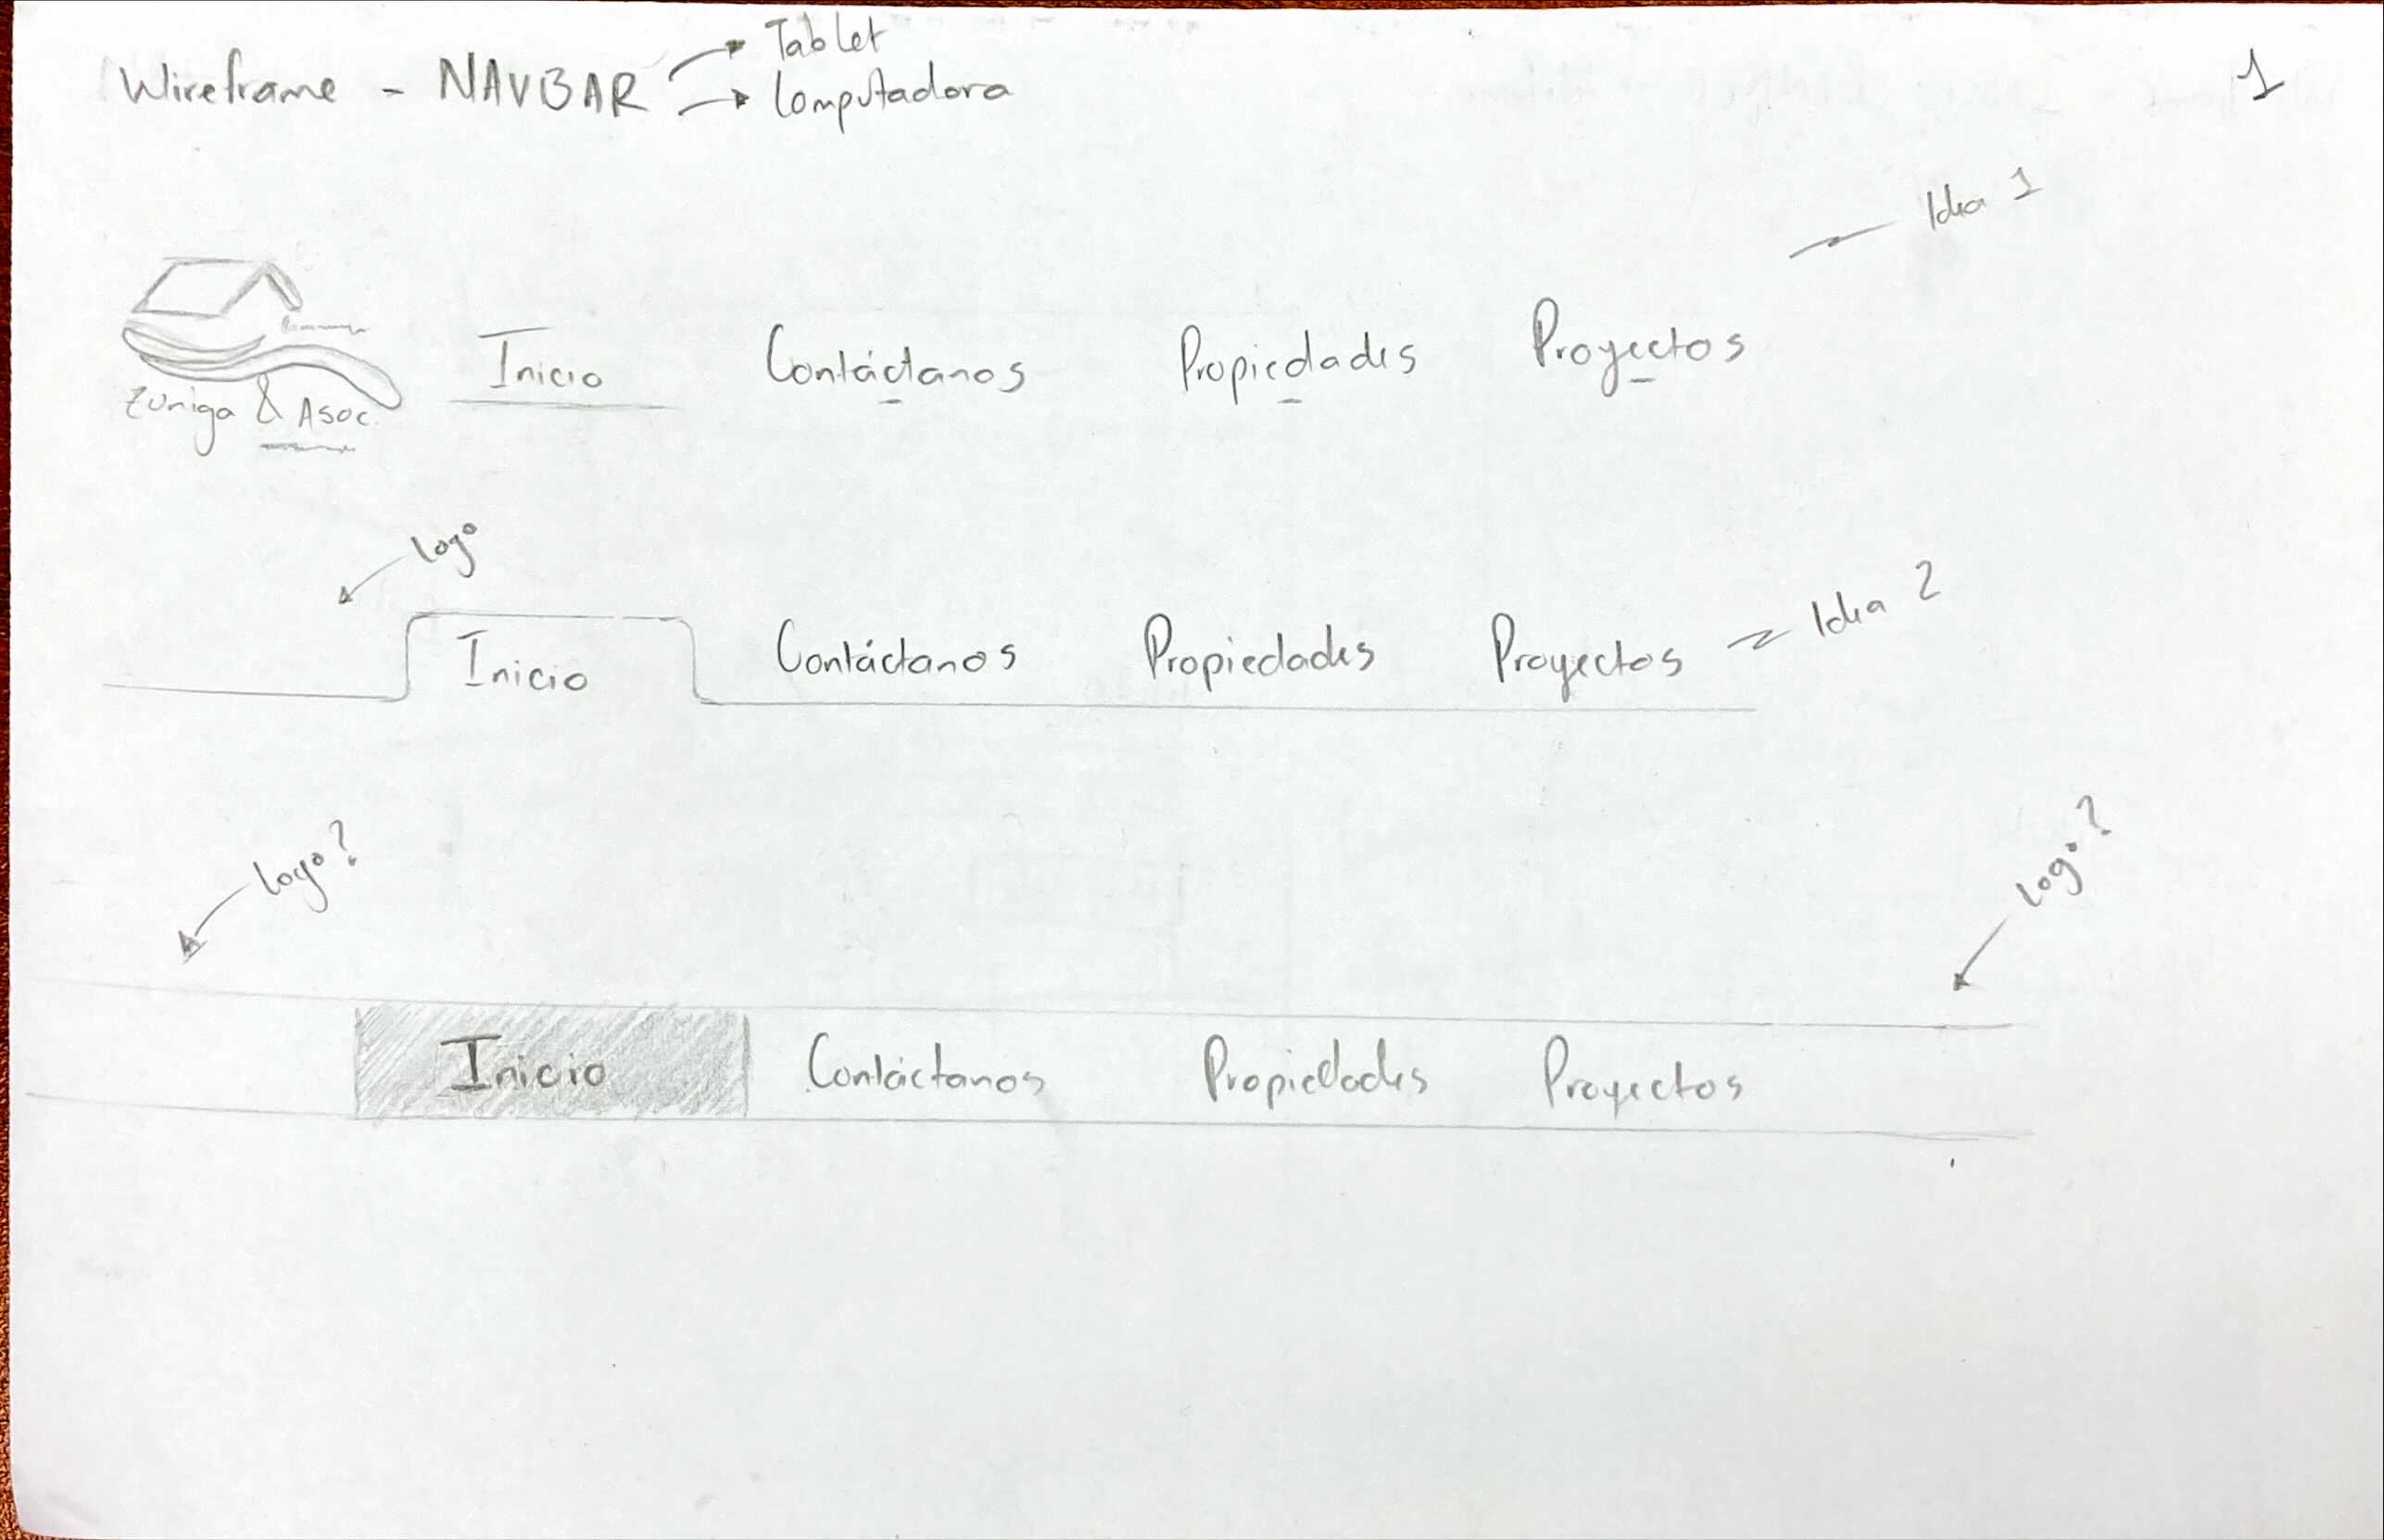 Tablet
Wireframe - NAVBAR
Computadora
1
Idea 1
Inicio Contáctanos Propiedades Proyectos
Zuniga & Asoc.
Logo
Inicio Contáctanos Propiedades Proyectos
Idea 2
Logo?
Logo?
Inicio Contáctanos Propiedades Proyectos